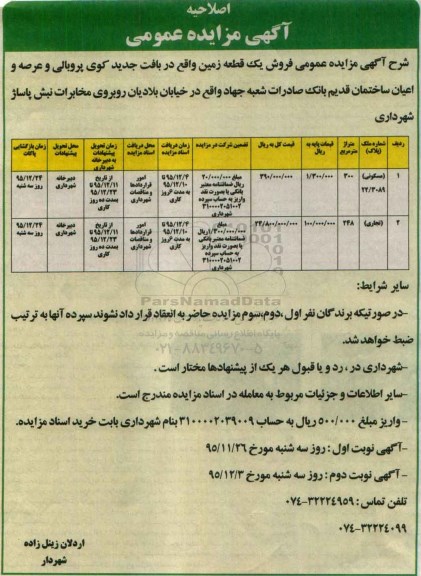 اصلاحیه
آگهی مزایده عمومی
شرح آگهی مزایده عمومی فروش یک قطعه زمین واقع در بافت جدید کوی پروبالی و عرصه و
اعیان ساختمان قدیم بانک صادرات شعبه جهاد واقع در خیابان بلادیان روبروی مخابرات نبش پاساژ
شهرداری
ردیف شماره ملک (پلاک) متراژ مترمربع قیمت پایه به ریال قیمت کل به ریال تضمین شرکت در مزایده زمان دریافت اسناد مزایده محل دریافت اسناد مزایده زمان تحویل پیشنهادات به دبیرخانه شهرداری محل تحویل پیشنهادات زمان بازگشایی پاکات
۱ (مسکونی) ۲۲/۳۰۸۹ ۳۰۰ ۱/۳۰۰/۰۰۰ ۳۹۰/۰۰۰/۰۰۰ مبلغ ۲۰/۰۰۰/۰۰۰ ریال ضمانتنامه معتبر بانکی یا بصورت نقد واریز به حساب سپرده ۳۱۰۰۰۰۲۰۵۱۰۰۲ شهرداری ۹۵/۱۲/۴ تا ۹۵/۱۲/۱۰ به مدت ۶ روز کاری امور قراردادها و مناقصات شهرداری از تاریخ ۹۵/۱۲/۱۱ تا ۹۵/۱۲/۲۳ بمدت ده روز کاری دبیرخانه شهرداری ۹۵/۱۲/۲۴ روز سه شنبه
۲ (تجاری) ۲۴۸ ۱۰۰/۰۰۰/۰۰۰ ۲۴/۸۰۰/۰۰۰/۰۰۰ مبلغ ۱/۳۰۰/۰۰۰/۰۰۰ ریال ضمانتنامه معتبر بانکی یا بصورت نقد واریز به حساب سپرده ۳۱۰۰۰۰۲۰۵۱۰۰۲ شهرداری ۹۵/۱۲/۴ تا ۹۵/۱۲/۱۰ به مدت ۶ روز کاری امور قراردادها و مناقصات شهرداری از تاریخ ۹۵/۱۲/۱۱ تا ۹۵/۱۲/۲۳ بمدت ده روز کاری دبیرخانه شهرداری ۹۵/۱۲/۲۴ روز سه شنبه
ParsNamadData
پایگاه اطلاع رسانی مناقصه و مزایده
۰۲۱-۸۸۳۴۹۶۷۰-۵
سایر شرایط:
-در صورتیکه برندگان نفر اول ،دوم،سوم مزایده حاضر به انعقاد قرار داد نشوند سپرده آنها به ترتیب
ضبط خواهد شد.
-شهرداری در ، رد و یا قبول هر یک از پیشنهادها مختار است .
-سایر اطلاعات و جزئیات مربوط به معامله در اسناد مزایده مندرج است.
- واریز مبلغ ۵۰۰/۰۰۰ ریال به حساب ۳۱۰۰۰۰۲۰۳۹۰۰۹ بنام شهرداری بابت خرید اسناد مزایده.
-آگهی نوبت اول : روز سه شنبه مورخ ۹۵/۱۱/۲۶
-آگهی نوبت دوم : روز سه شنبه مورخ ۹۵/۱۲/۳
تلفن تماس : ۳۲۲۲۴۹۵۹-۰۷۴
۰۷۴-۳۲۲۲۴۰۹۹
اردلان زینل زاده
شهردار